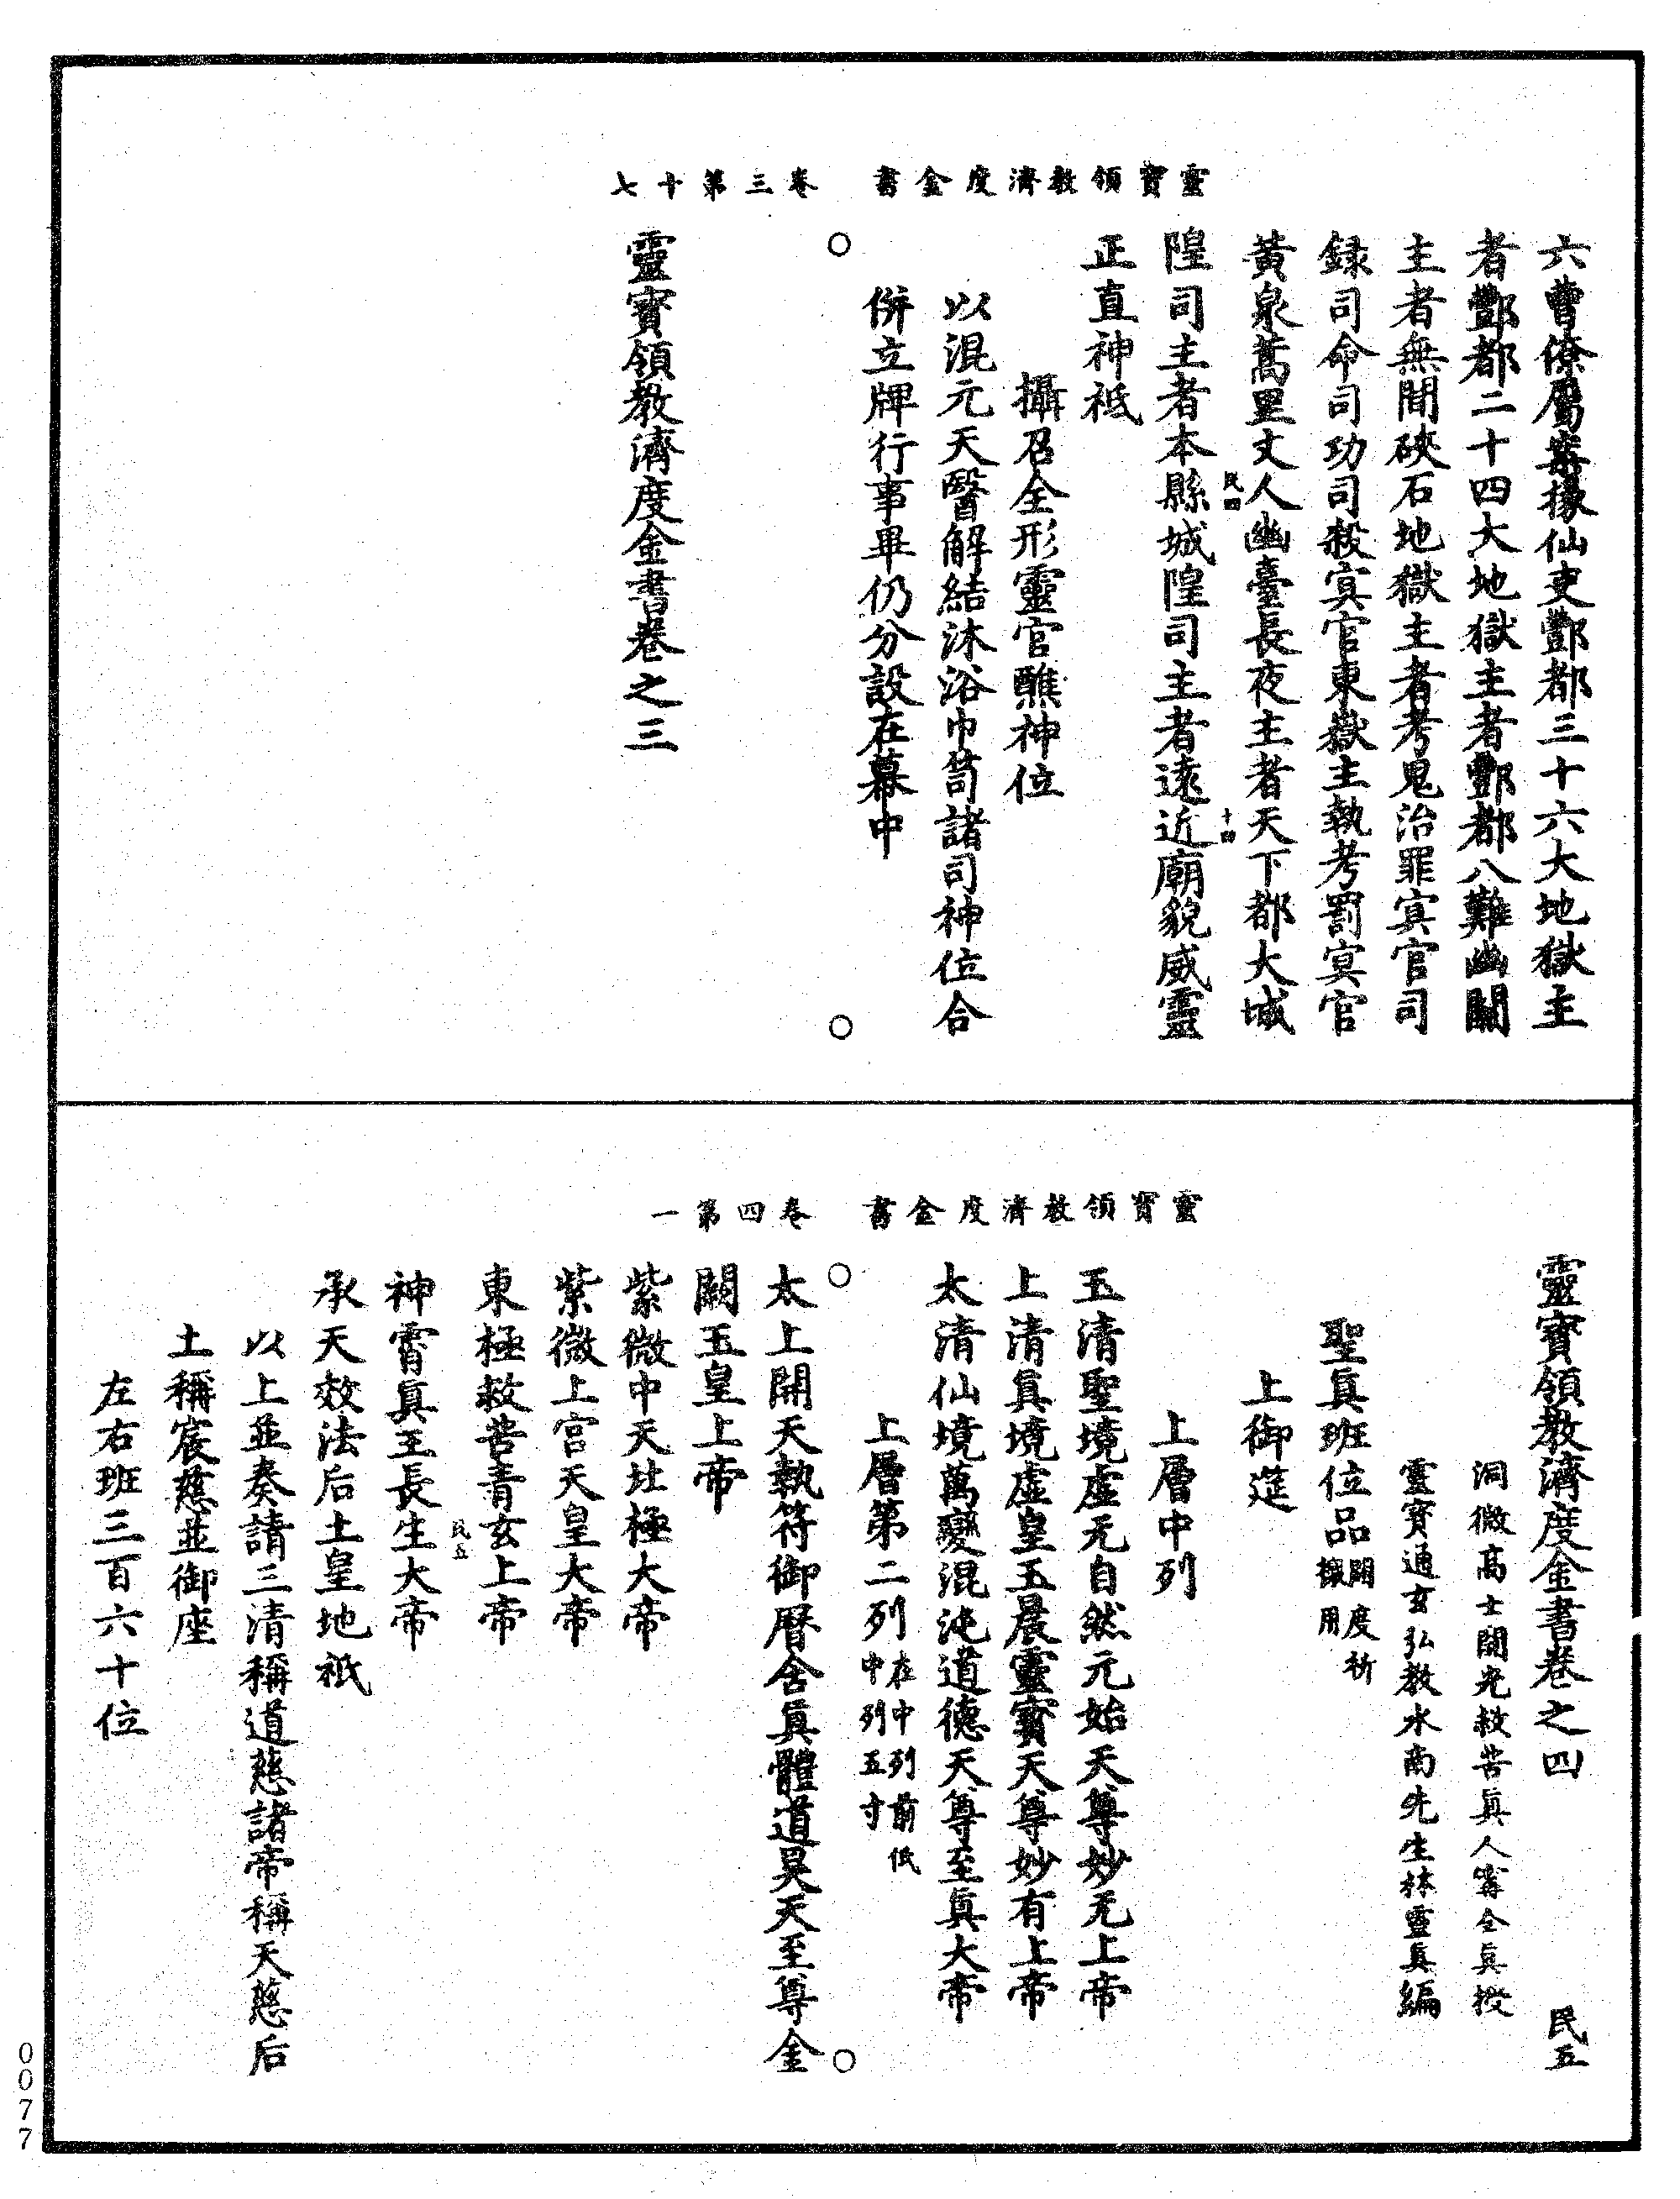 靈寶領教濟度金書 卷三第十七
六曹僚屬案掾仙吏酆都三十六大地獄主
者酆都二十四大地獄主者酆都八難幽關
主者無間硤石地獄主者考鬼治罪冥官司
録司命司功司殺冥官東嶽主執考罰冥官
黃泉蒿里丈人幽臺長夜主者天下都大城
民四 十四
隍司主者本縣城隍司主者遠近廟貌威靈
正直神祗
攝召全形靈官醮神位
以混元天醫解結沐浴巾笥諸司神位合
併立牌行事畢仍分設在幕中
靈寶領教濟度金書卷之三
靈寶領教濟度金書 卷四第一
靈寶領教濟度金書卷之四 民五
洞微高士開光救苦真人甯全真授
靈寶通玄弘教水南先生林靈真編
聖真班位品開度祈禳用
上御筵
上層中列
玉清聖境虛无自然元始天尊妙无上帝
上清真境虛皇玉晨靈寶天尊妙有上帝
太清仙境萬變混沌道德天尊至真大帝
上層第二列在中列前低中列五寸
太上開天執符御曆含真體道昊天至尊金
闕玉皇上帝
紫微中天北極大帝
紫微上宮天皇大帝
東極救苦青玄上帝
民五
神霄真王長生大帝
承天效法后土皇地祇
以上並奏請三清稱道慈諸帝稱天慈后
土稱宸慈並御座
左右班三百六十位
0077